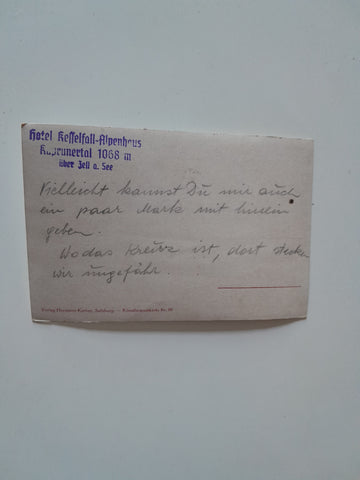 Hotel Kesselfall-Alpenhaus
Kaprunertal 1068 m
über Zell a. See
Vielleicht kannst Du mir auch
ein paar Mark mit hinein
geben.
Wo das Kreuz ist, dort stecken
wir ungefähr.
Verlag Hermann Kerber, Salzburg — Künstlerpostkarte Nr.